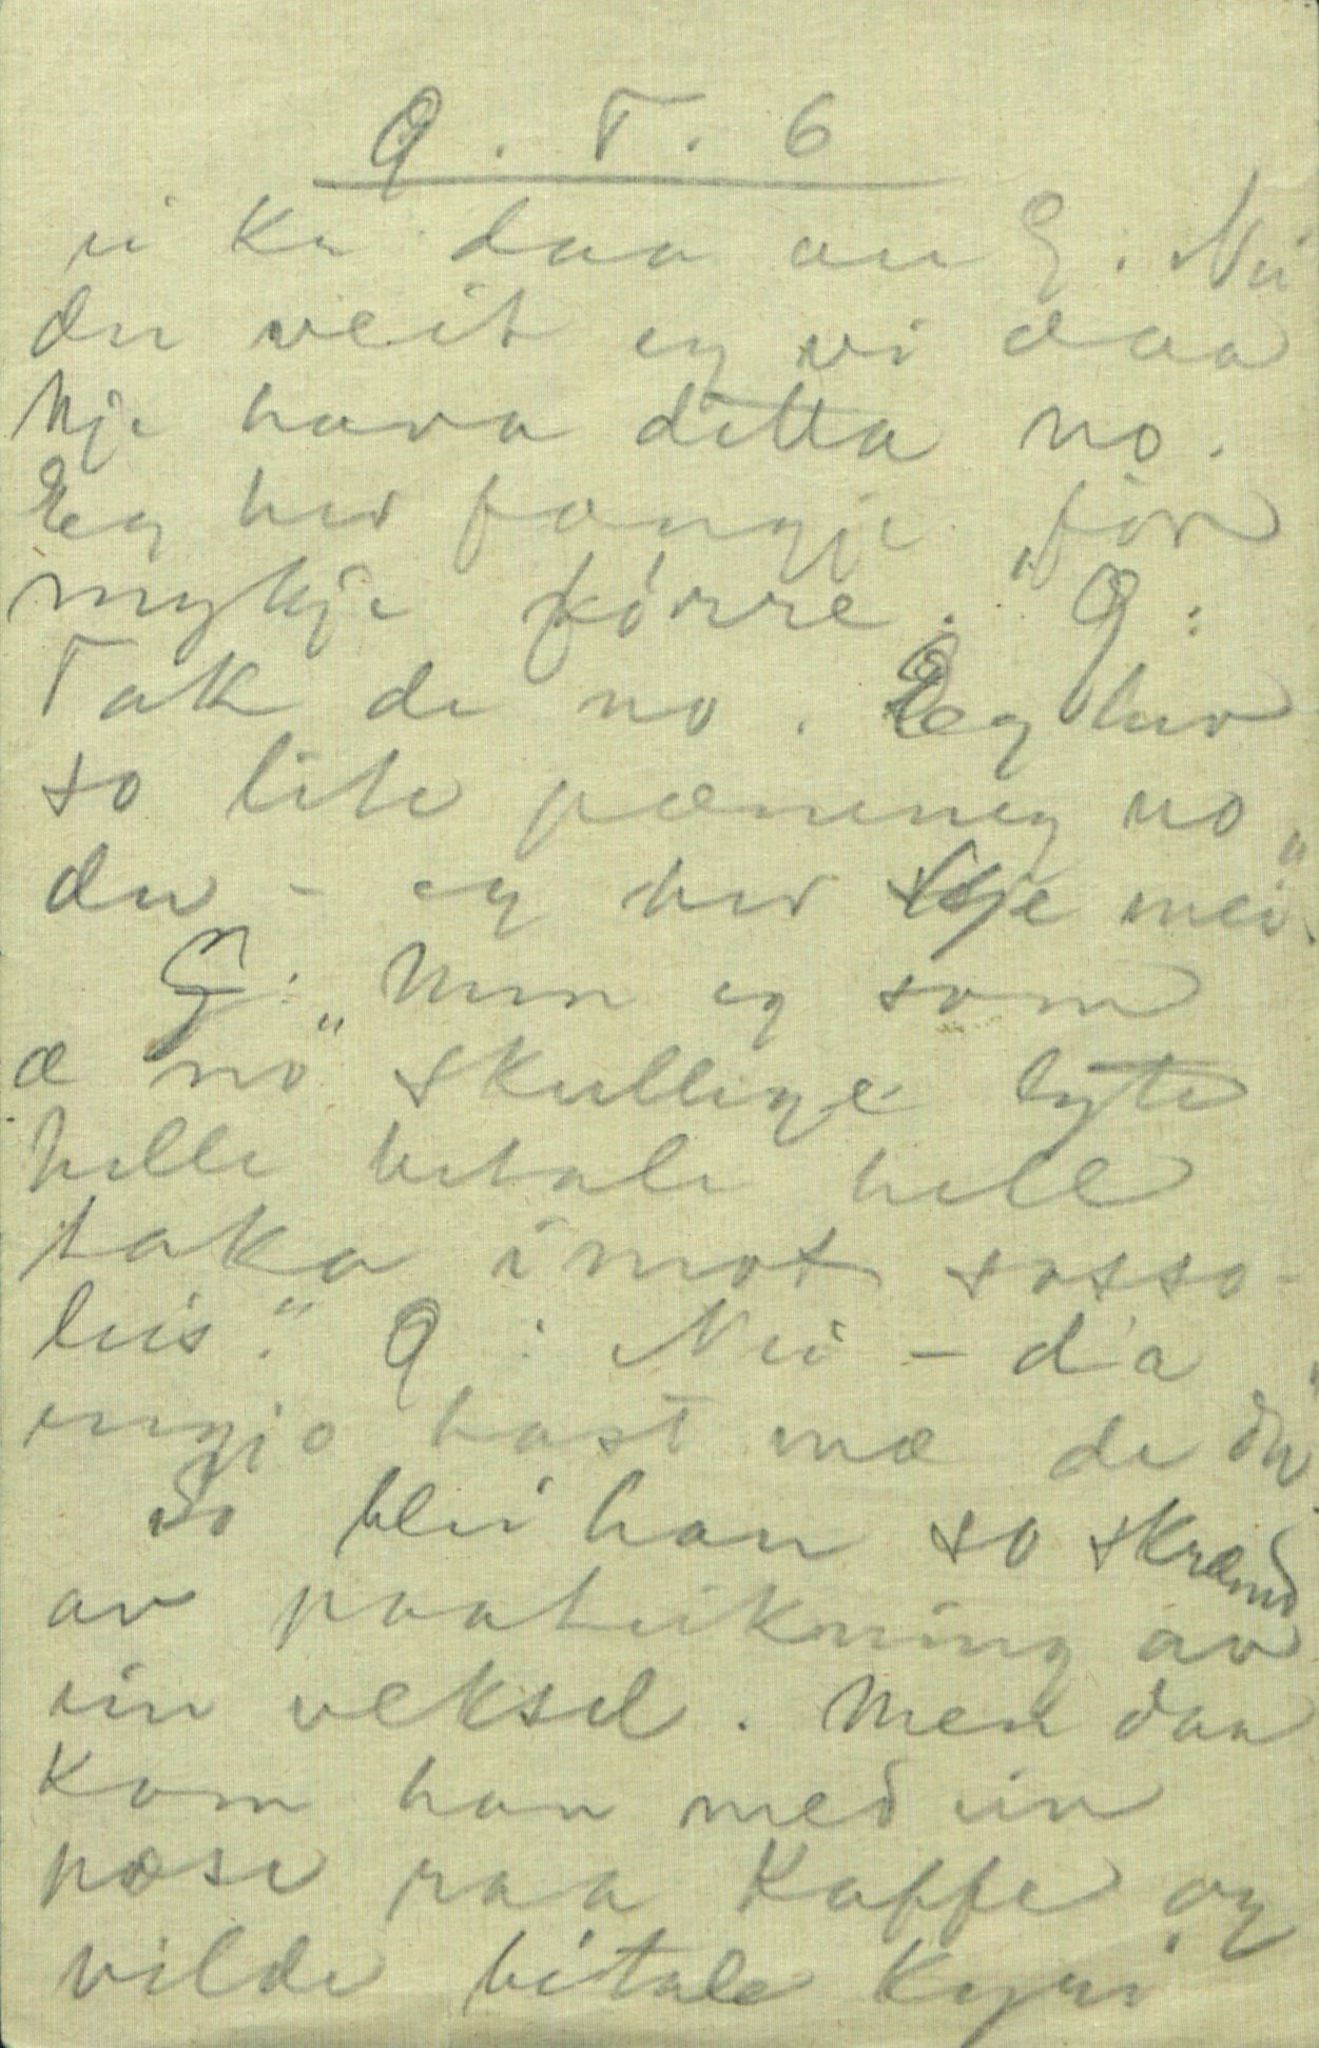 O. T. 6
ei ku daa au G: Nei
du veit eg vi daa
kje hava ditta no.
Eg her fongje för
mykje förre." O:
Tak de no. Eg her
so lite pæninng no
du - eg her kje mei.
G: "Men eg som
æ no" skulluge lyte
helle betale hell
taka imot sosso-
leis." O: Nei - d'a
ingjo hast mæ de du
So blei han so skræmd
av paateikning av
ein veksel. Men daa
kom han med ein
pose raa Kaffe og
vilde bitale Kyri